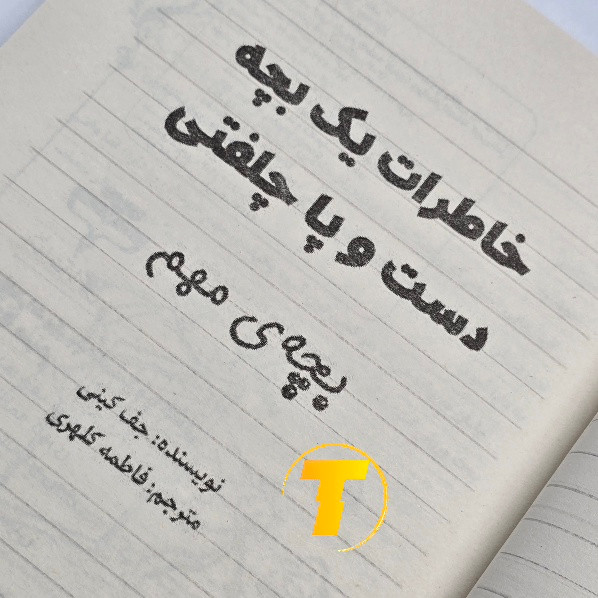 خاطرات یک بچه
دست و پا چلفتی
بچه‌ی مهم
نویسنده: جف کینی
مترجم: فاطمه کلهری
T